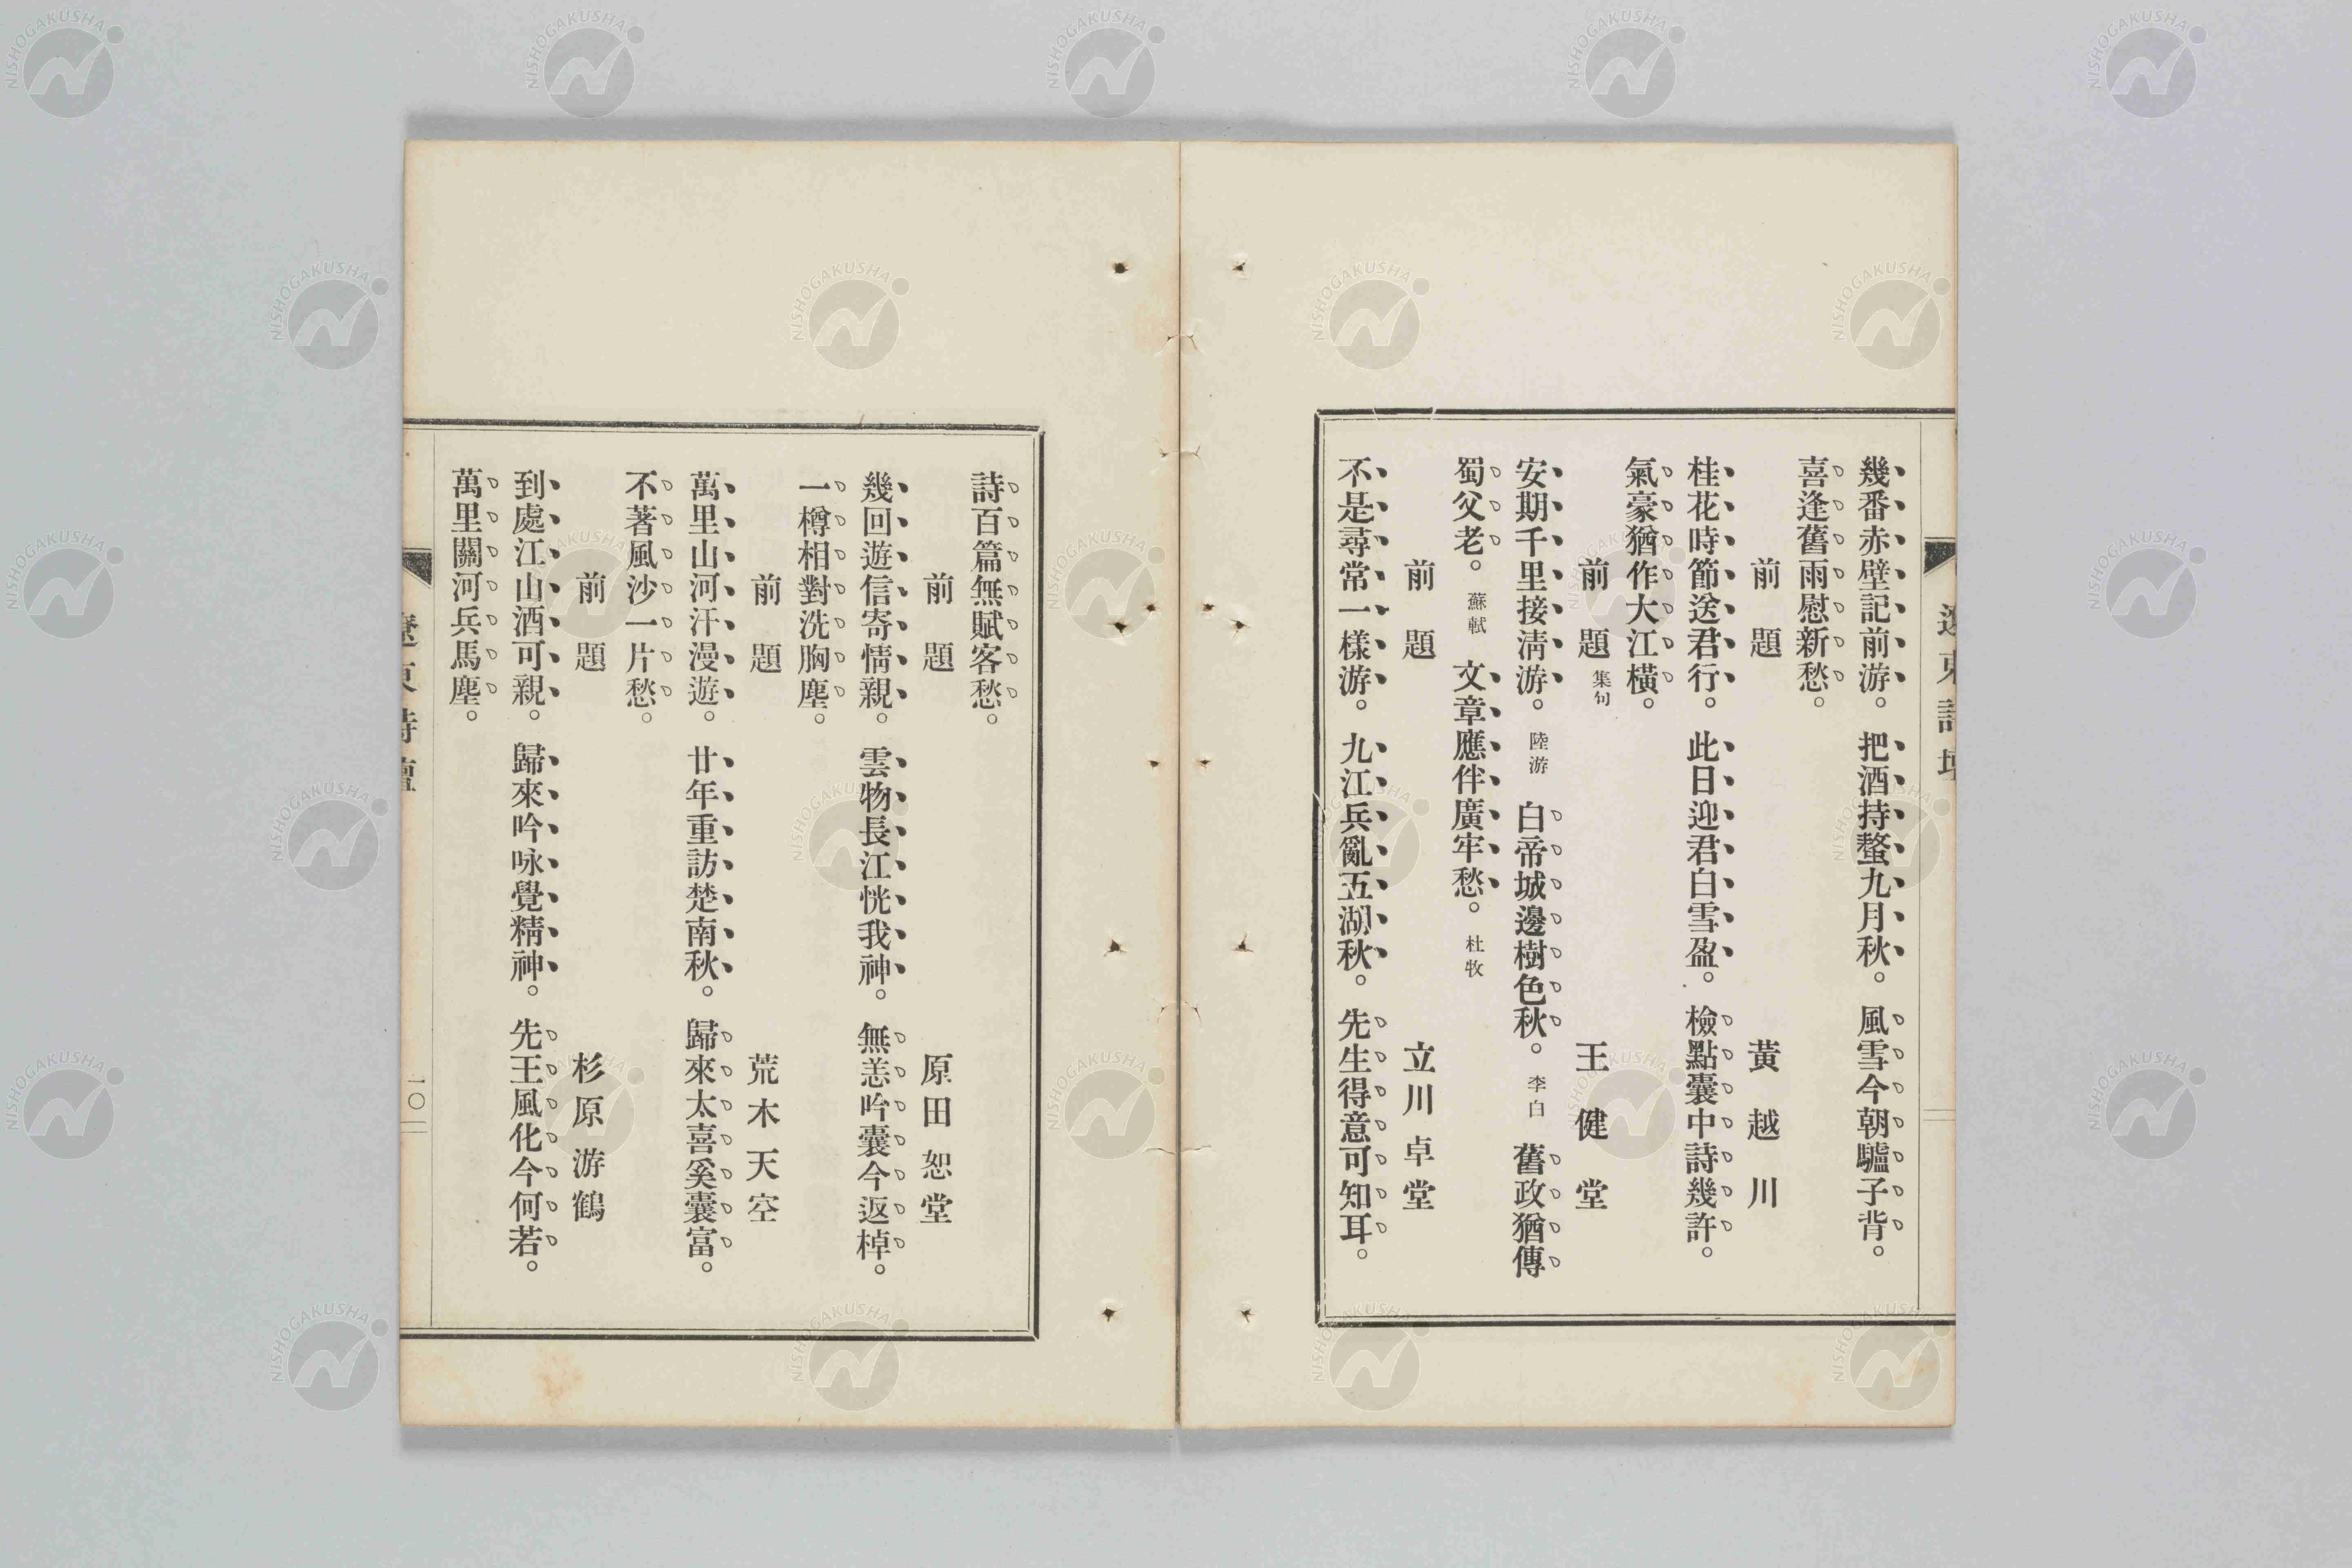 遼東詩壇
幾番赤壁記前游。把酒持螯九月秋。風雪今朝驢子背。
喜逢舊雨慰新愁。
前題 黃越川
桂花時節送君行。此日迎君白雪盈。檢點囊中詩幾許。
氣豪猶作大江橫。
前題 集句 王健堂
安期千里接淸游。陸游 白帝城邊樹色秋。李白 舊政猶傳
蜀父老。蘇軾 文章應伴廣牢愁。杜牧
前題 立川卓堂
不是尋常一樣游。九江兵亂五湖秋。先生得意可知耳。
詩百篇無賦客愁。
前題 原田恕堂
幾回遊信寄情親。雲物長江恍我神。無恙吟囊今返棹。
一樽相對洗胸塵。
前題 荒木天空
萬里山河汗漫遊。廿年重訪楚南秋。歸來太喜奚囊富。
不著風沙一片愁。
前題 杉原游鶴
到處江山酒可親。歸來吟咏覺精神。先王風化今何若。
萬里關河兵馬塵。
遼東詩壇
一〇
NISHOGAKUSHA